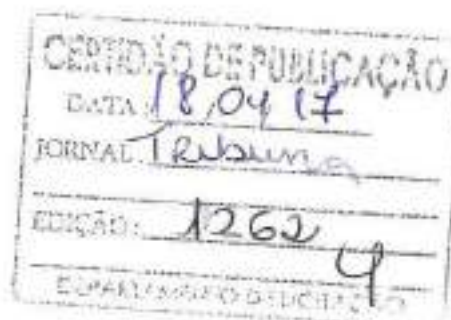 CERTIDÃO DE PUBLICAÇÃO
DATA 18,04 17
JORNAL Tribuna
EDIÇÃO: 12624
DEPARTAMENTO DE LICITAÇÃO